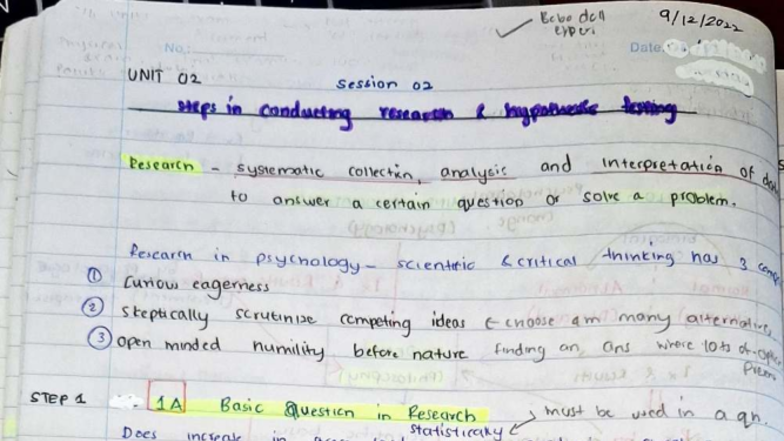 Bobo doll
experi
9/12/2022
No:
Date:
UNIT 02
Session 02
Steps in conducting research & hypothesis testing
Research - systematic collection, analysis and interpretation of
to answer a certain question or solve a problem.
Research in psychology - scientific & critical thinking has 3
① Curious eagerness
② skeptically scrutinize competing ideas choose am many
③ open minded humility before nature finding an ans where lots of
STEP 1 1A Basic Question in Research
must be used in a qn.
statistically
Does increase in